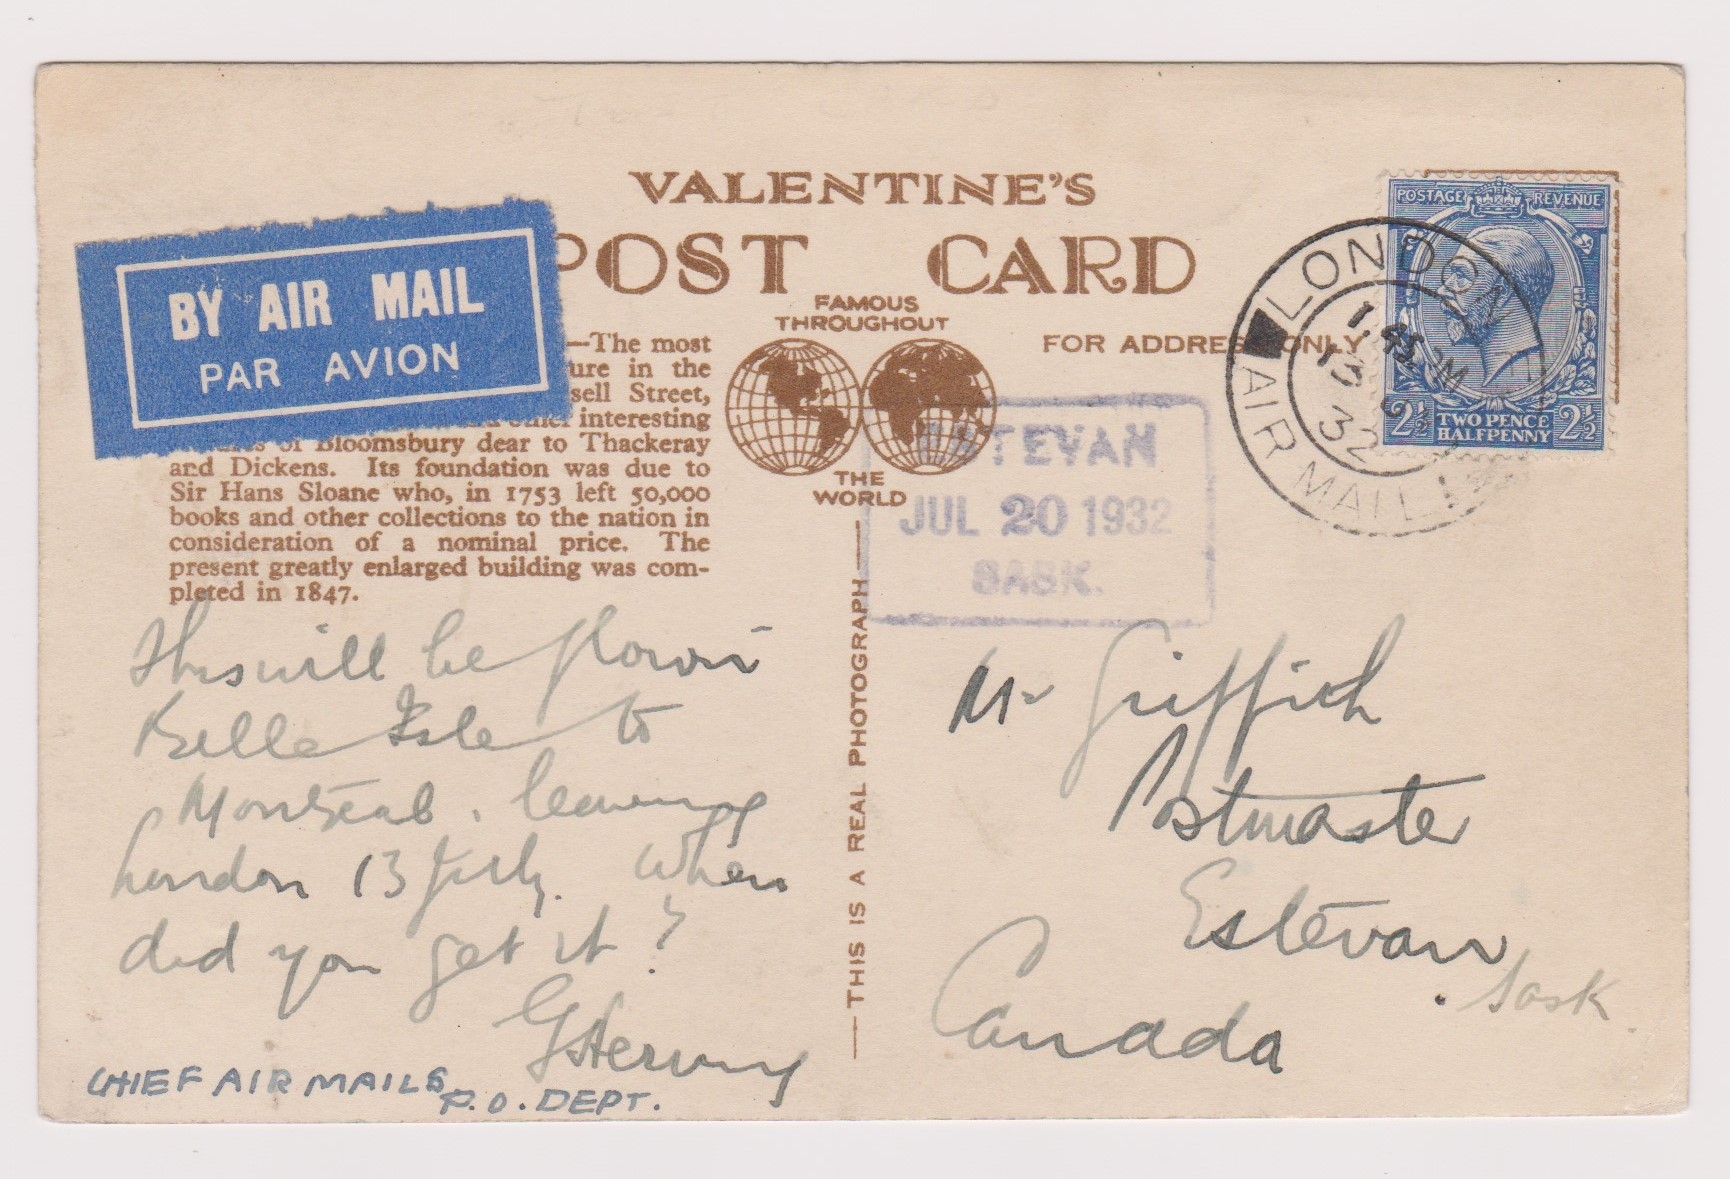 VALENTINE'S
POST CARD
FAMOUS
THROUGHOUT
THE
WORLD
FOR ADDRESS ONLY
BY AIR MAIL
PAR AVION
—The most
ture in the
sell Street,
interesting
of Bloomsbury dear to Thackeray
and Dickens. Its foundation was due to
Sir Hans Sloane who, in 1753 left 50,000
books and other collections to the nation in
consideration of a nominal price. The
present greatly enlarged building was com-
pleted in 1847.
This will be flown
Belle Isle to
Montreal. leaving
London 13 July. When
did you get it?
CHIEF AIR MAILS
P.O. DEPT.
THIS IS A REAL PHOTOGRAPH
ESTEVAN
JUL 20 1932
SASK.
LONDON
AIR MAIL
1.45 PM
32
POSTAGE REVENUE
2½ TWO PENCE HALFPENNY 2½
Mr Griffith
Postmaster
Estevan
Sask.
Canada